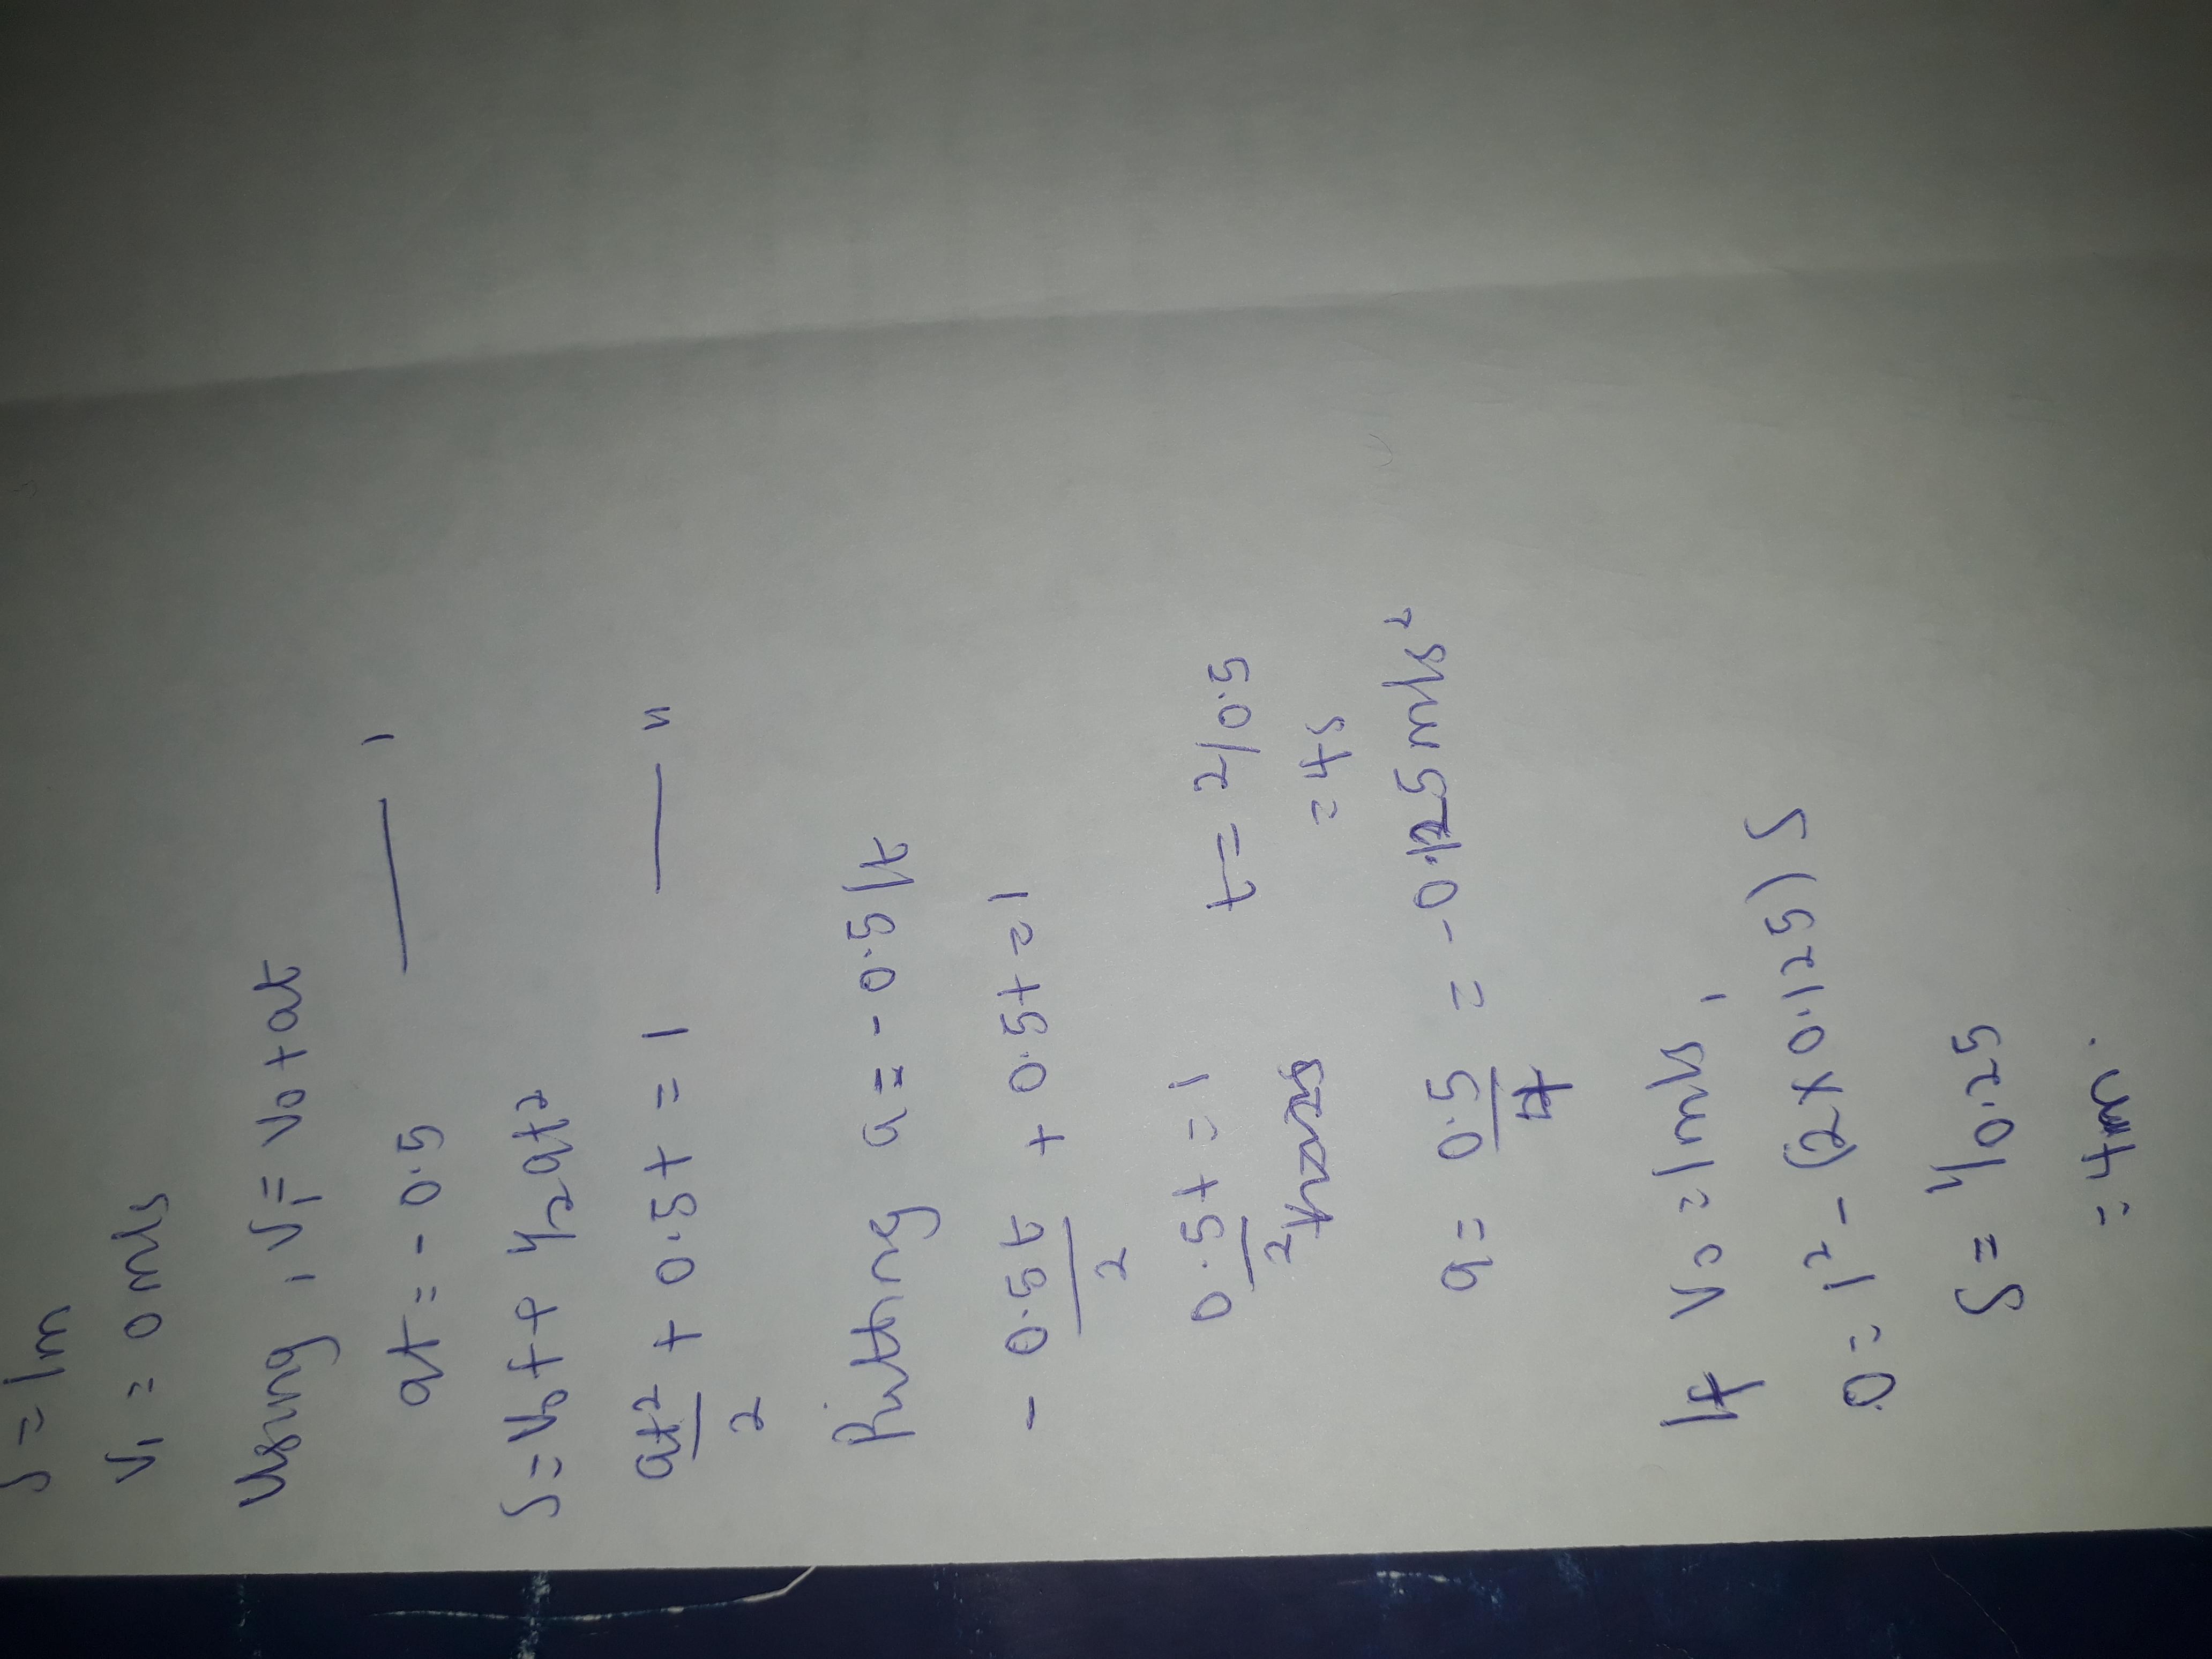 S = 1m
V₁ = 0 m/s
Using, V₁ = V₀ + at
at = - 0.5 —— '
S = V₀t + 1/2 at²
at²/2 + 0.5t = 1 —— "
Putting a = - 0.5/t
- 0.5t/2 + 0.5t = 1
0.5t/2 = 1 t = 2/0.5
= 4s
a = 0.5/4 = - 0.125 m/s²
If V₀ = 1 m/s,
0 = 1² - (2 x 0.125) S
S = 1/0.25
= 4m.